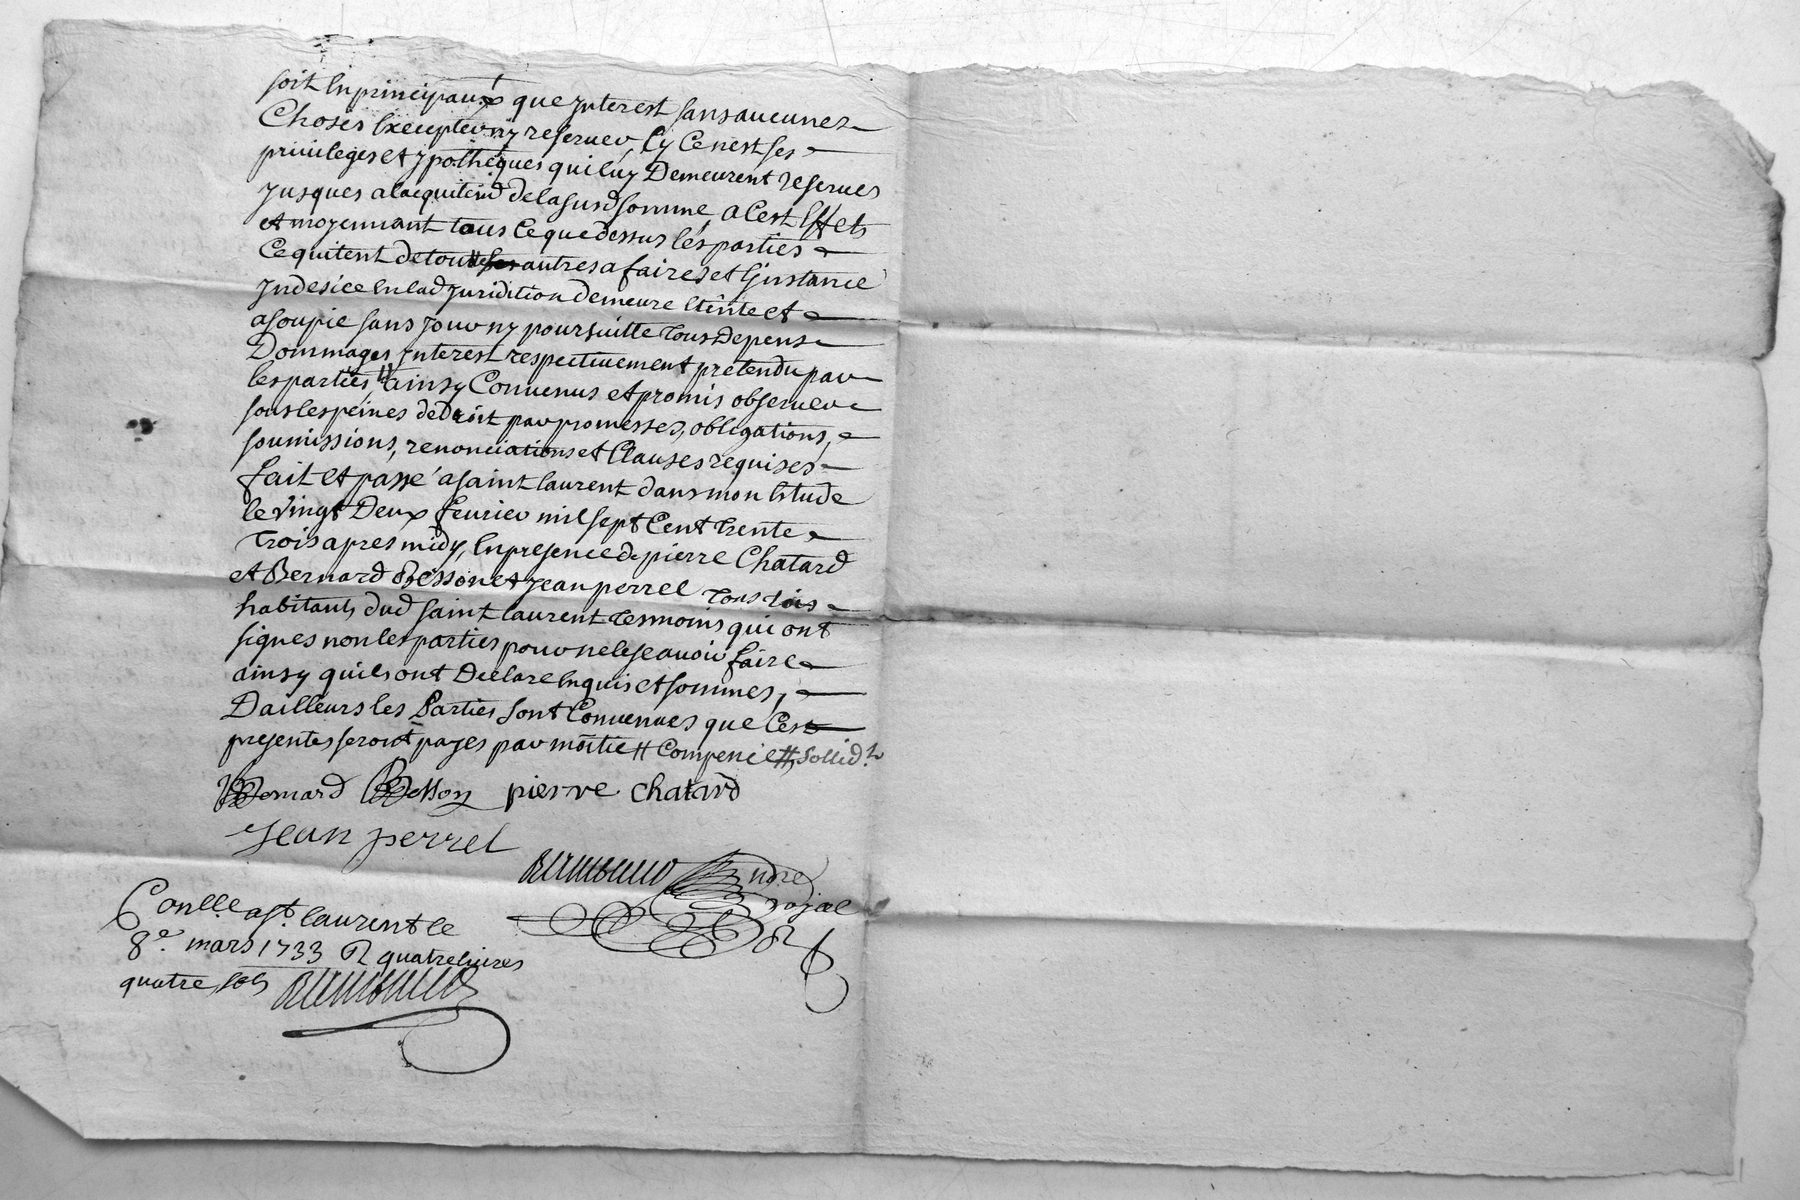 soit en principaux que jnterest sans aucunes
Choses Excepter ny reserver, Cy Ce nest ses
priuileges et jpotheques qui luy Demeurent reserues
jusques a lacquitem.t de la susd somme, a Cest Effets
et moyennant tous Ce que dessus les parties
Ce quitent de toutes autres afaires et Ljnstance
jndesice En lad juridition demeure Eteinte et
asoupie sans jour ny poursuitte tous Depens
Dommages jnterest respectiuement pretendu par
les parties ainsy Conuenus et promis obseruer
sous les peines de Droit par promesses, obligations,
soumissions, renonciations et Clauses requises
fait et passé a saint laurent dans mon Etude
le vingt Deux feurier mil sept Cent trente
trois apres midy, En presence de pierre Chatard
et Bernard Besson et jean perrel tous trois
habitants dud saint laurent tesmoins qui ont
signes non les parties pour ne le scauoir faire
ainsy quils ont Declare Enquis et sommes,
Dailleurs les Parties sont Conuenues que Ces
presentes seront payes par moitie # Compencé # sollid.t
Bernard Besson pierre chatard
jean perrel
ndre
royal
Conlle a st. laurent le
8.e mars 1733 R quatre liures
quatre sols